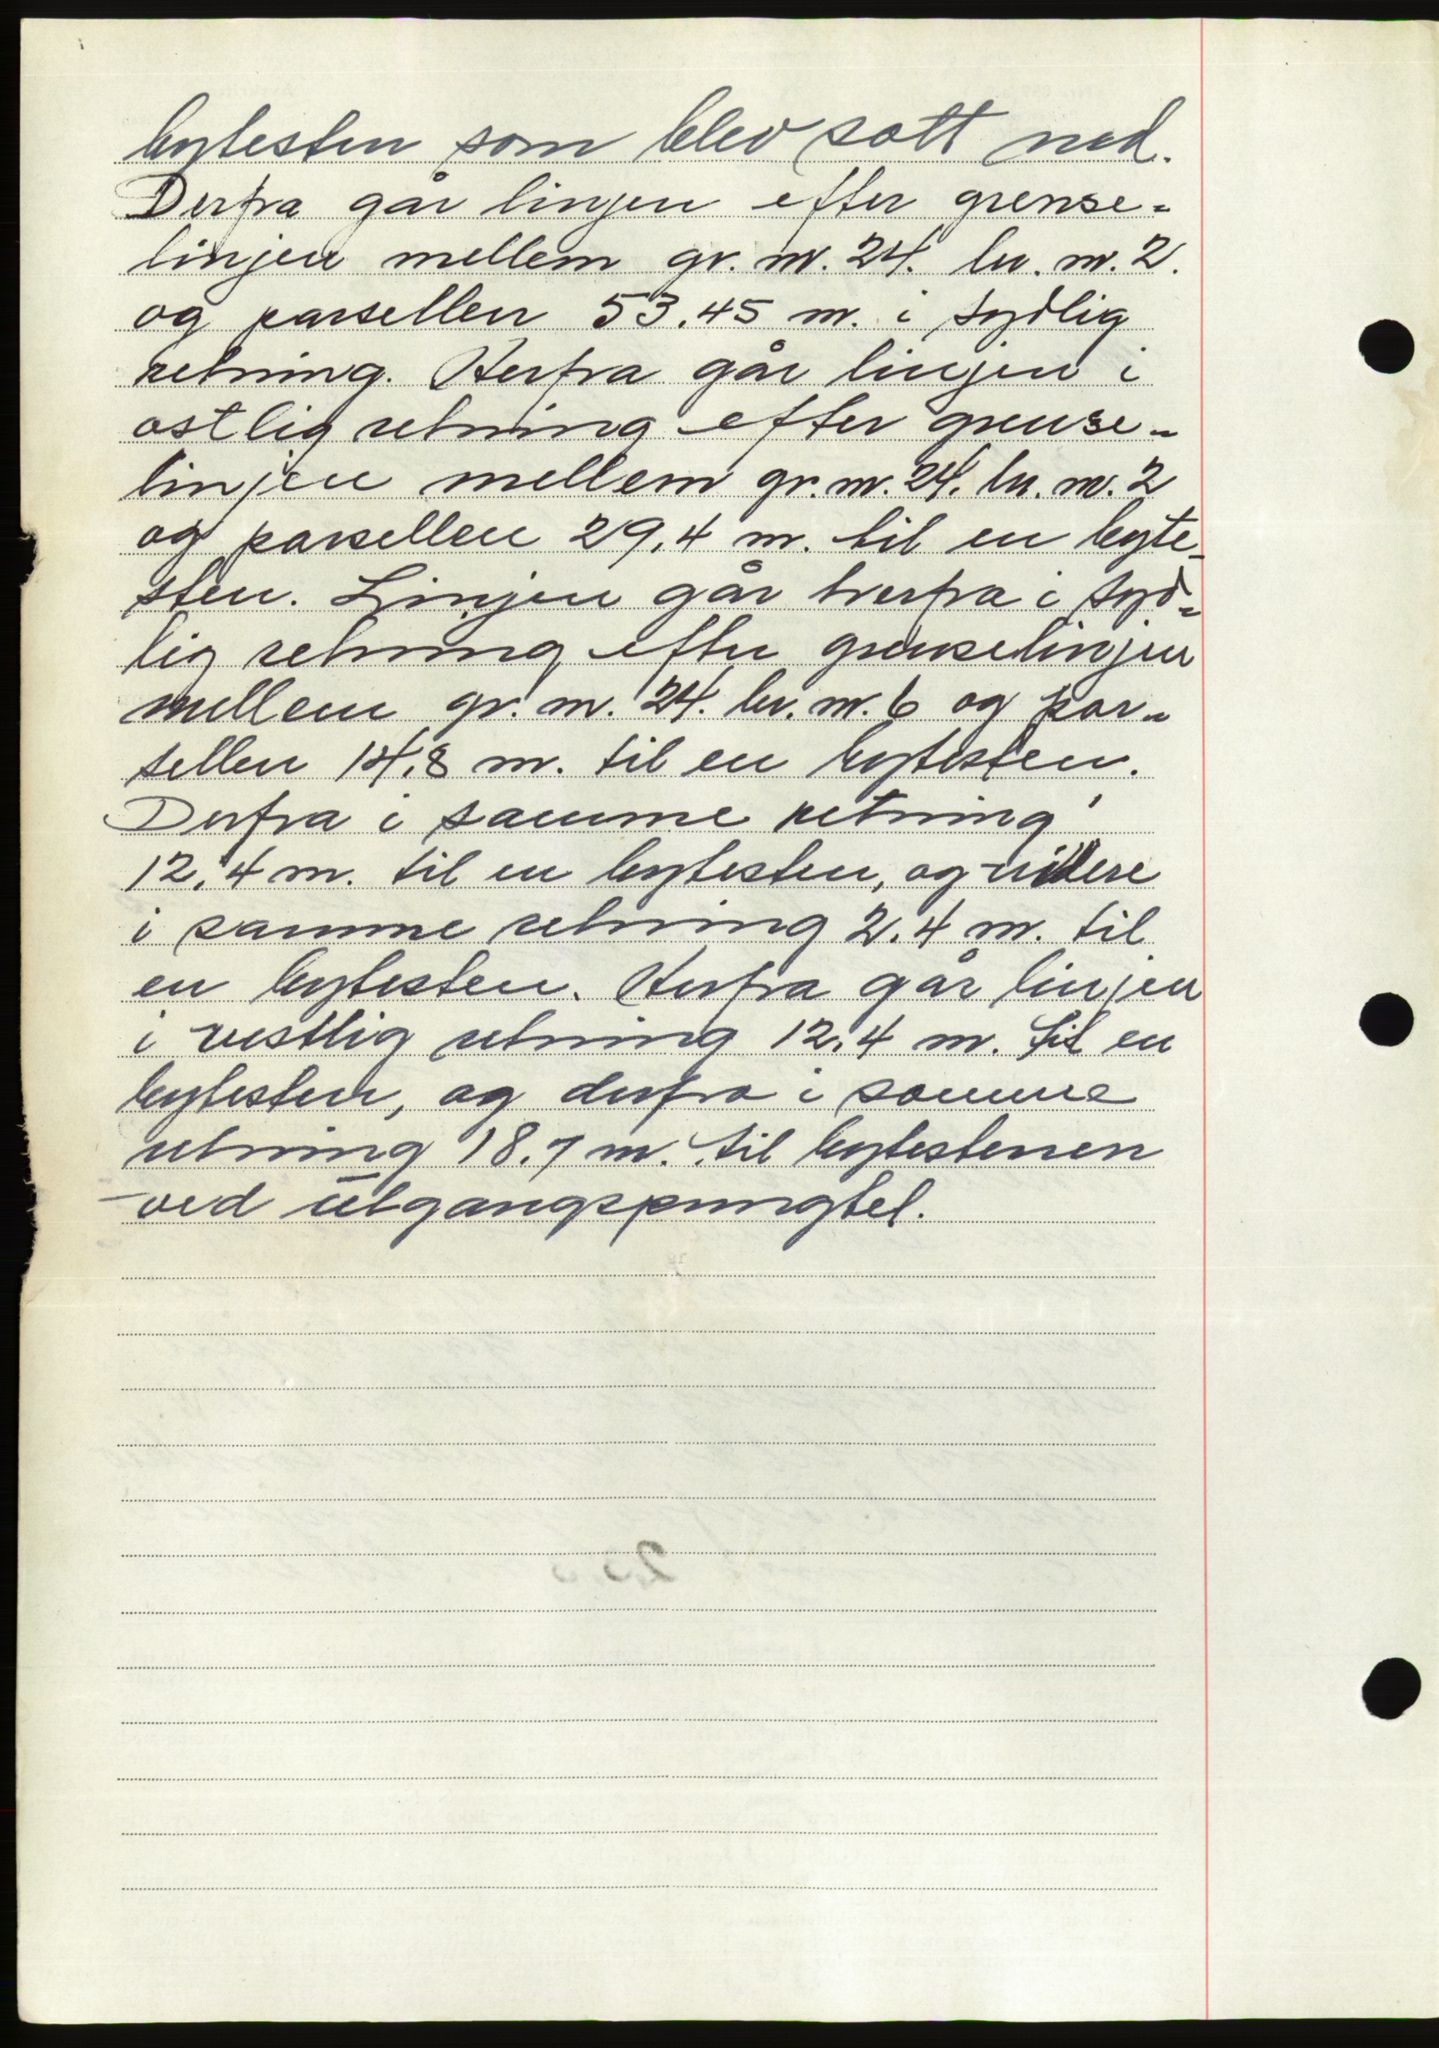 bytesten som blev satt ned.
Derfra går linjen efter grense-
linjen mellem gr. nr. 24. br. nr. 2.
og parsellen 53.45 m. i sydlig
retning. Herfra går linjen i
østlig retning efter grense-
linjen mellem gr. nr. 24. br. nr. 2
og parsellen 29,4 m. til en byte-
sten. Linjen går herfra i syd-
lig retning efter grenselinjen
mellem gr. nr. 24. br. nr. 6 og par-
sellen 14,8 m. til en bytesten.
Derfra i samme retning
12,4 m. til en bytesten, og videre
i samme retning 2.4 m. til
en bytesten. Herfra går linjen
i vestlig retning 12,4 m. til en
bytesten, og derfra i samme
retning 18.7 m. til bytestenen
ved utgangspungtet.